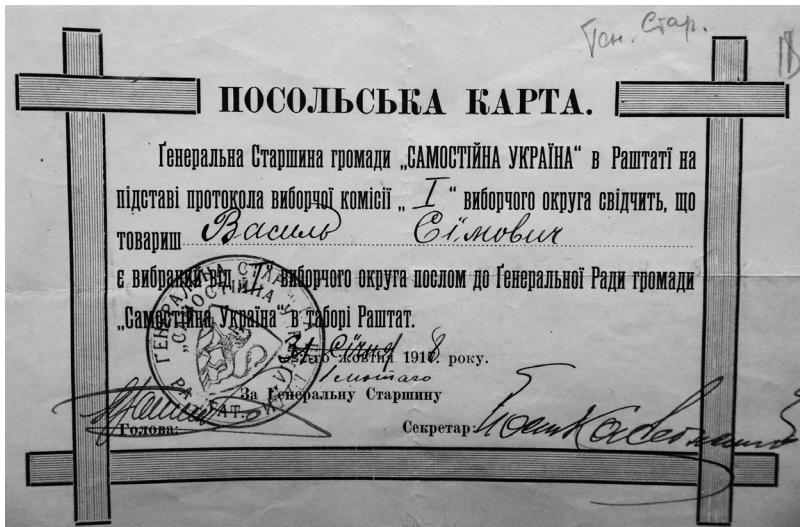 Ґен. Стар.
ПОСОЛЬСЬКА КАРТА.
Ґенеральна Старшина громади „САМОСТІЙНА УКРАЇНА“ в Раштатї на
підставі протокола виборчої комісії „ I “ виборчого округа свідчить, що
товариш Василь Сїмович
є вибраний від „I“ виборчого округа послом до Ґенеральної Ради громади
„Самостійна Україна“ в таборі Раштат.
31 Сїчня
22-го жовтня 1918 року.
1 лютого
За Ґенеральну Старшину
Голова:
Секретар:
ҐЕНЕРАЛЬНА СТАРШИНА ГРОМАДИ
„САМОСТІЙНА УКРАЇНА“
РАШТАТ